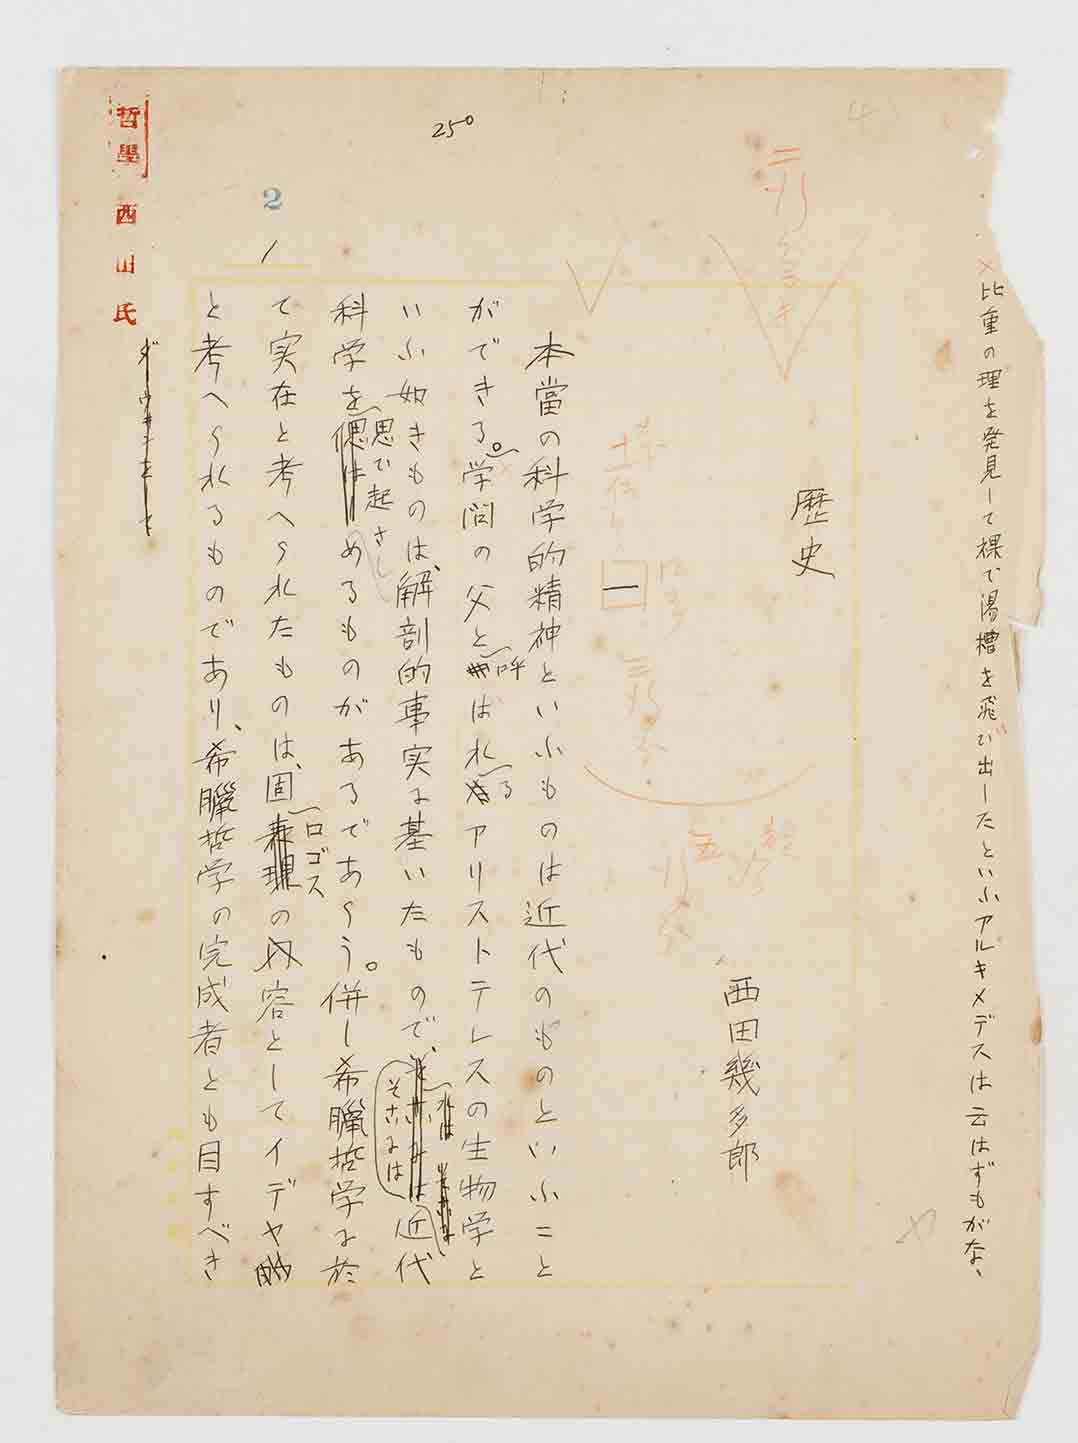 ×比重の理を発見して裸で湯槽を飛び出したといふアルキメデスは云はずもがな、
歴史
西田幾多郎
一
本當の科学的精神といふものは近代のものといふこと
ができる。学問の父と呼はれるアリストテレスの生物学と
いふ如きものは、解剖的事実に基いたもので、そこには近代
科学を思ひ起さしめるものがあるであらう。併し希臘哲学に於
て実在と考へられたものは、固ロゴスの内容としてイデヤ的
と考へられるものであり、希臘哲学の完成者とも目すべき
250
2
1
哲學
西田氏